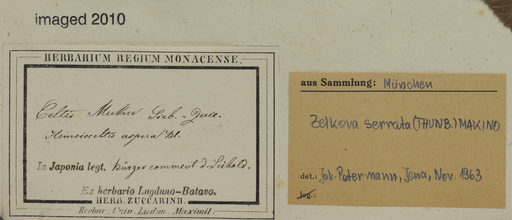 imaged 2010
HERBARIUM REGIUM MONACENSE.
Celtis Muku Sieb.
Homoioceltis aspera Bl.
In Japonia legt. Bürger comment d. Siebold.
Ex herbario Lugduno-Batavo.
HERB. ZUCCARINII.
Herbar. Univ. Ludov. Maximil.
aus Sammlung: München
Zelkova serrata (THUNB.) MAKINO
det.: Joh. Petermann, Jena, Nov. 1963
leg.: